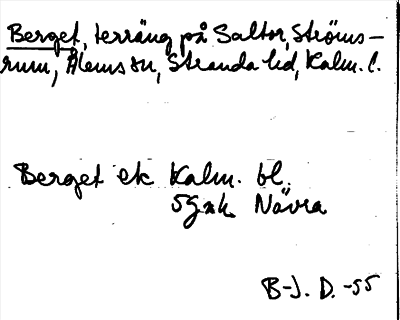 Berget, terräng på Saltor, Ströms-
rum, Ålems sn, Stranda hd, Kalm. l.
Berget ek Kalm. bl.
5G xk Növra
B-J. D. -55